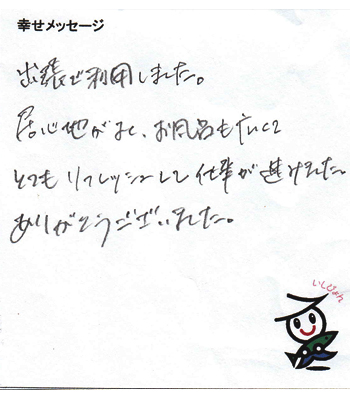 幸せメッセージ
出張で利用しました。
居心地がよく、お風呂も広くて
とてもリフレッシュして仕事が進みました。
ありがとうございました。
いしぴょん